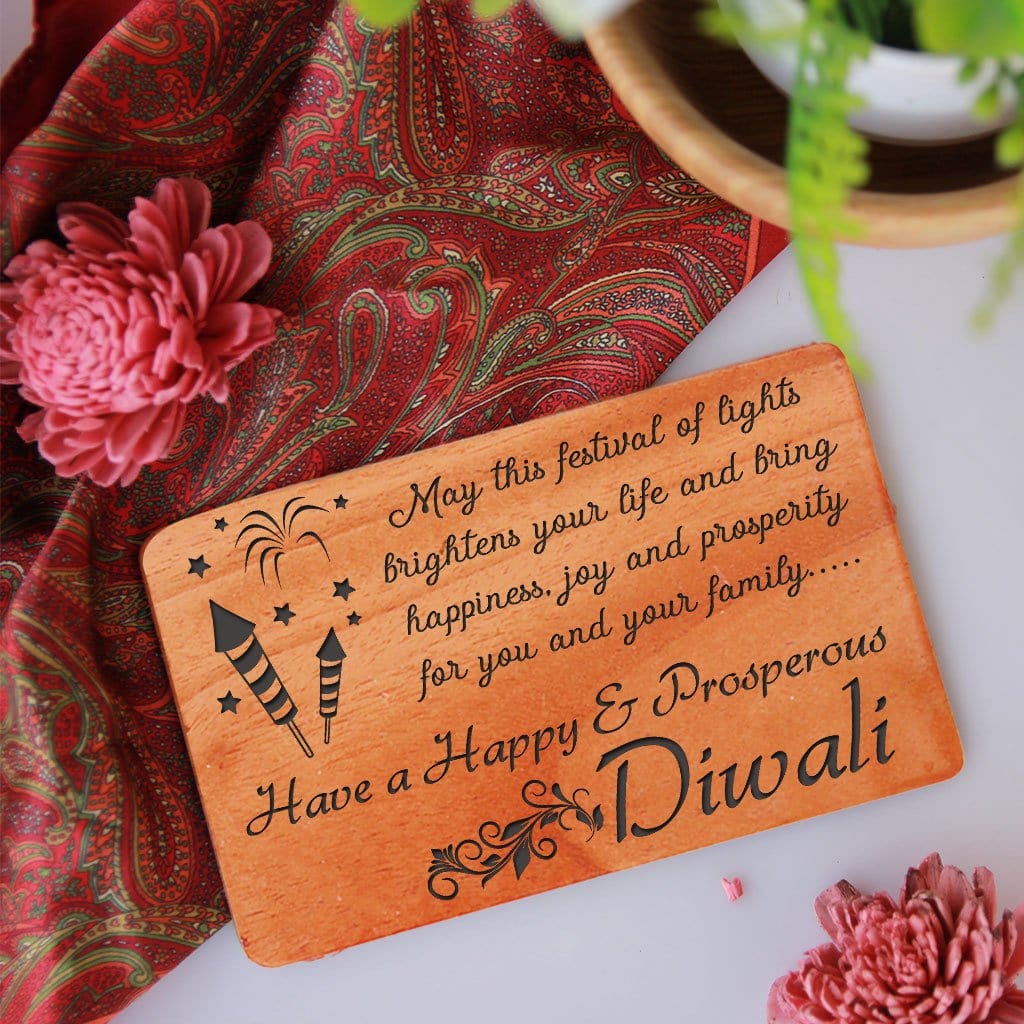 May this festival of lights
brightens your life and bring
happiness, joy and prosperity
for you and your family.....
Have a Happy & Prosperous
Diwali